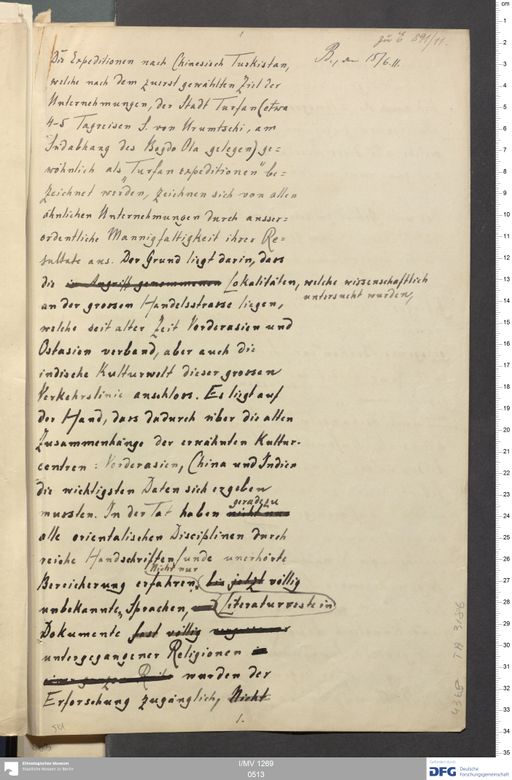 zu E 891/11.
B., den 15/6.11.
Die Expeditionen nach Chinesisch Turkistan,
welche nach dem zuerst gewählten Ziel der
Unternehmungen, der Stadt Turfan (etwa
4-5 Tagreisen S. von Urumtschi, am
Südabhang des Bogdo Ola gelegen) ge=
wöhnlich als "Turfan expeditionen" be=
zeichnet werden, zeichnen sich von allen
ähnlichen Unternehmungen durch ausser=
ordentliche Mannigfaltigkeit ihrer Re=
sultate aus. Der Grund liegt darin, dass
die in Angriff genommenen Lokalitäten, welche wissenschaftlich
untersucht wurden,
an der grossen Handelsstrasse liegen,
welche seit alter Zeit Vorderasien und
Ostasien verband, aber auch die
indische Kulturwelt dieser grossen
Verkehrslinie anschloss. Es liegt auf
der Hand, dass dadurch über die alten
Zusammenhänge der erwähnten Kultur-
centren: Vorderasien, China und Indien
die wichtigsten Daten sich ergeben
mussten. In der Tat haben geradezu
nicht nur
alle orientalischen Disciplinen durch
reiche Handschriftenfunde unerhörte
Bereicherung erfahren. Nicht nur bis jetzt völlig
unbekannte Sprachen, Literaturreste in
Dokumente fast völlig
untergegangener Religionen
wurden der
Erforschung zugänglich, Nicht
1.
Ethnologisches Museum
Staatliche Museen zu Berlin
I/MV 1269
0513
DFG Deutsche
Forschungsgemeinschaft